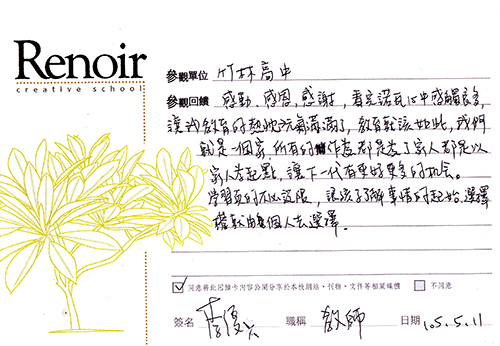 Renoir
creative school
參觀單位 竹林高中
參觀回饋 感動、感恩、感謝,看完諾瓦心中感觸良多,
讓我教育的熱忱充氣滿了,教育就該如此,我們
就是一個家,所有的作為都是為了家人都是以
家人為起點,讓下一代有更好更多的機会。
學習真的不必設限,讓孩子了解事情的起始,選擇
權就由每個人去選擇.
同意將此回饋卡內容公開分享於本校網站、刊物、文件等相關媒體 不同意
簽名 李優 職稱 教師 日期 105.5.11